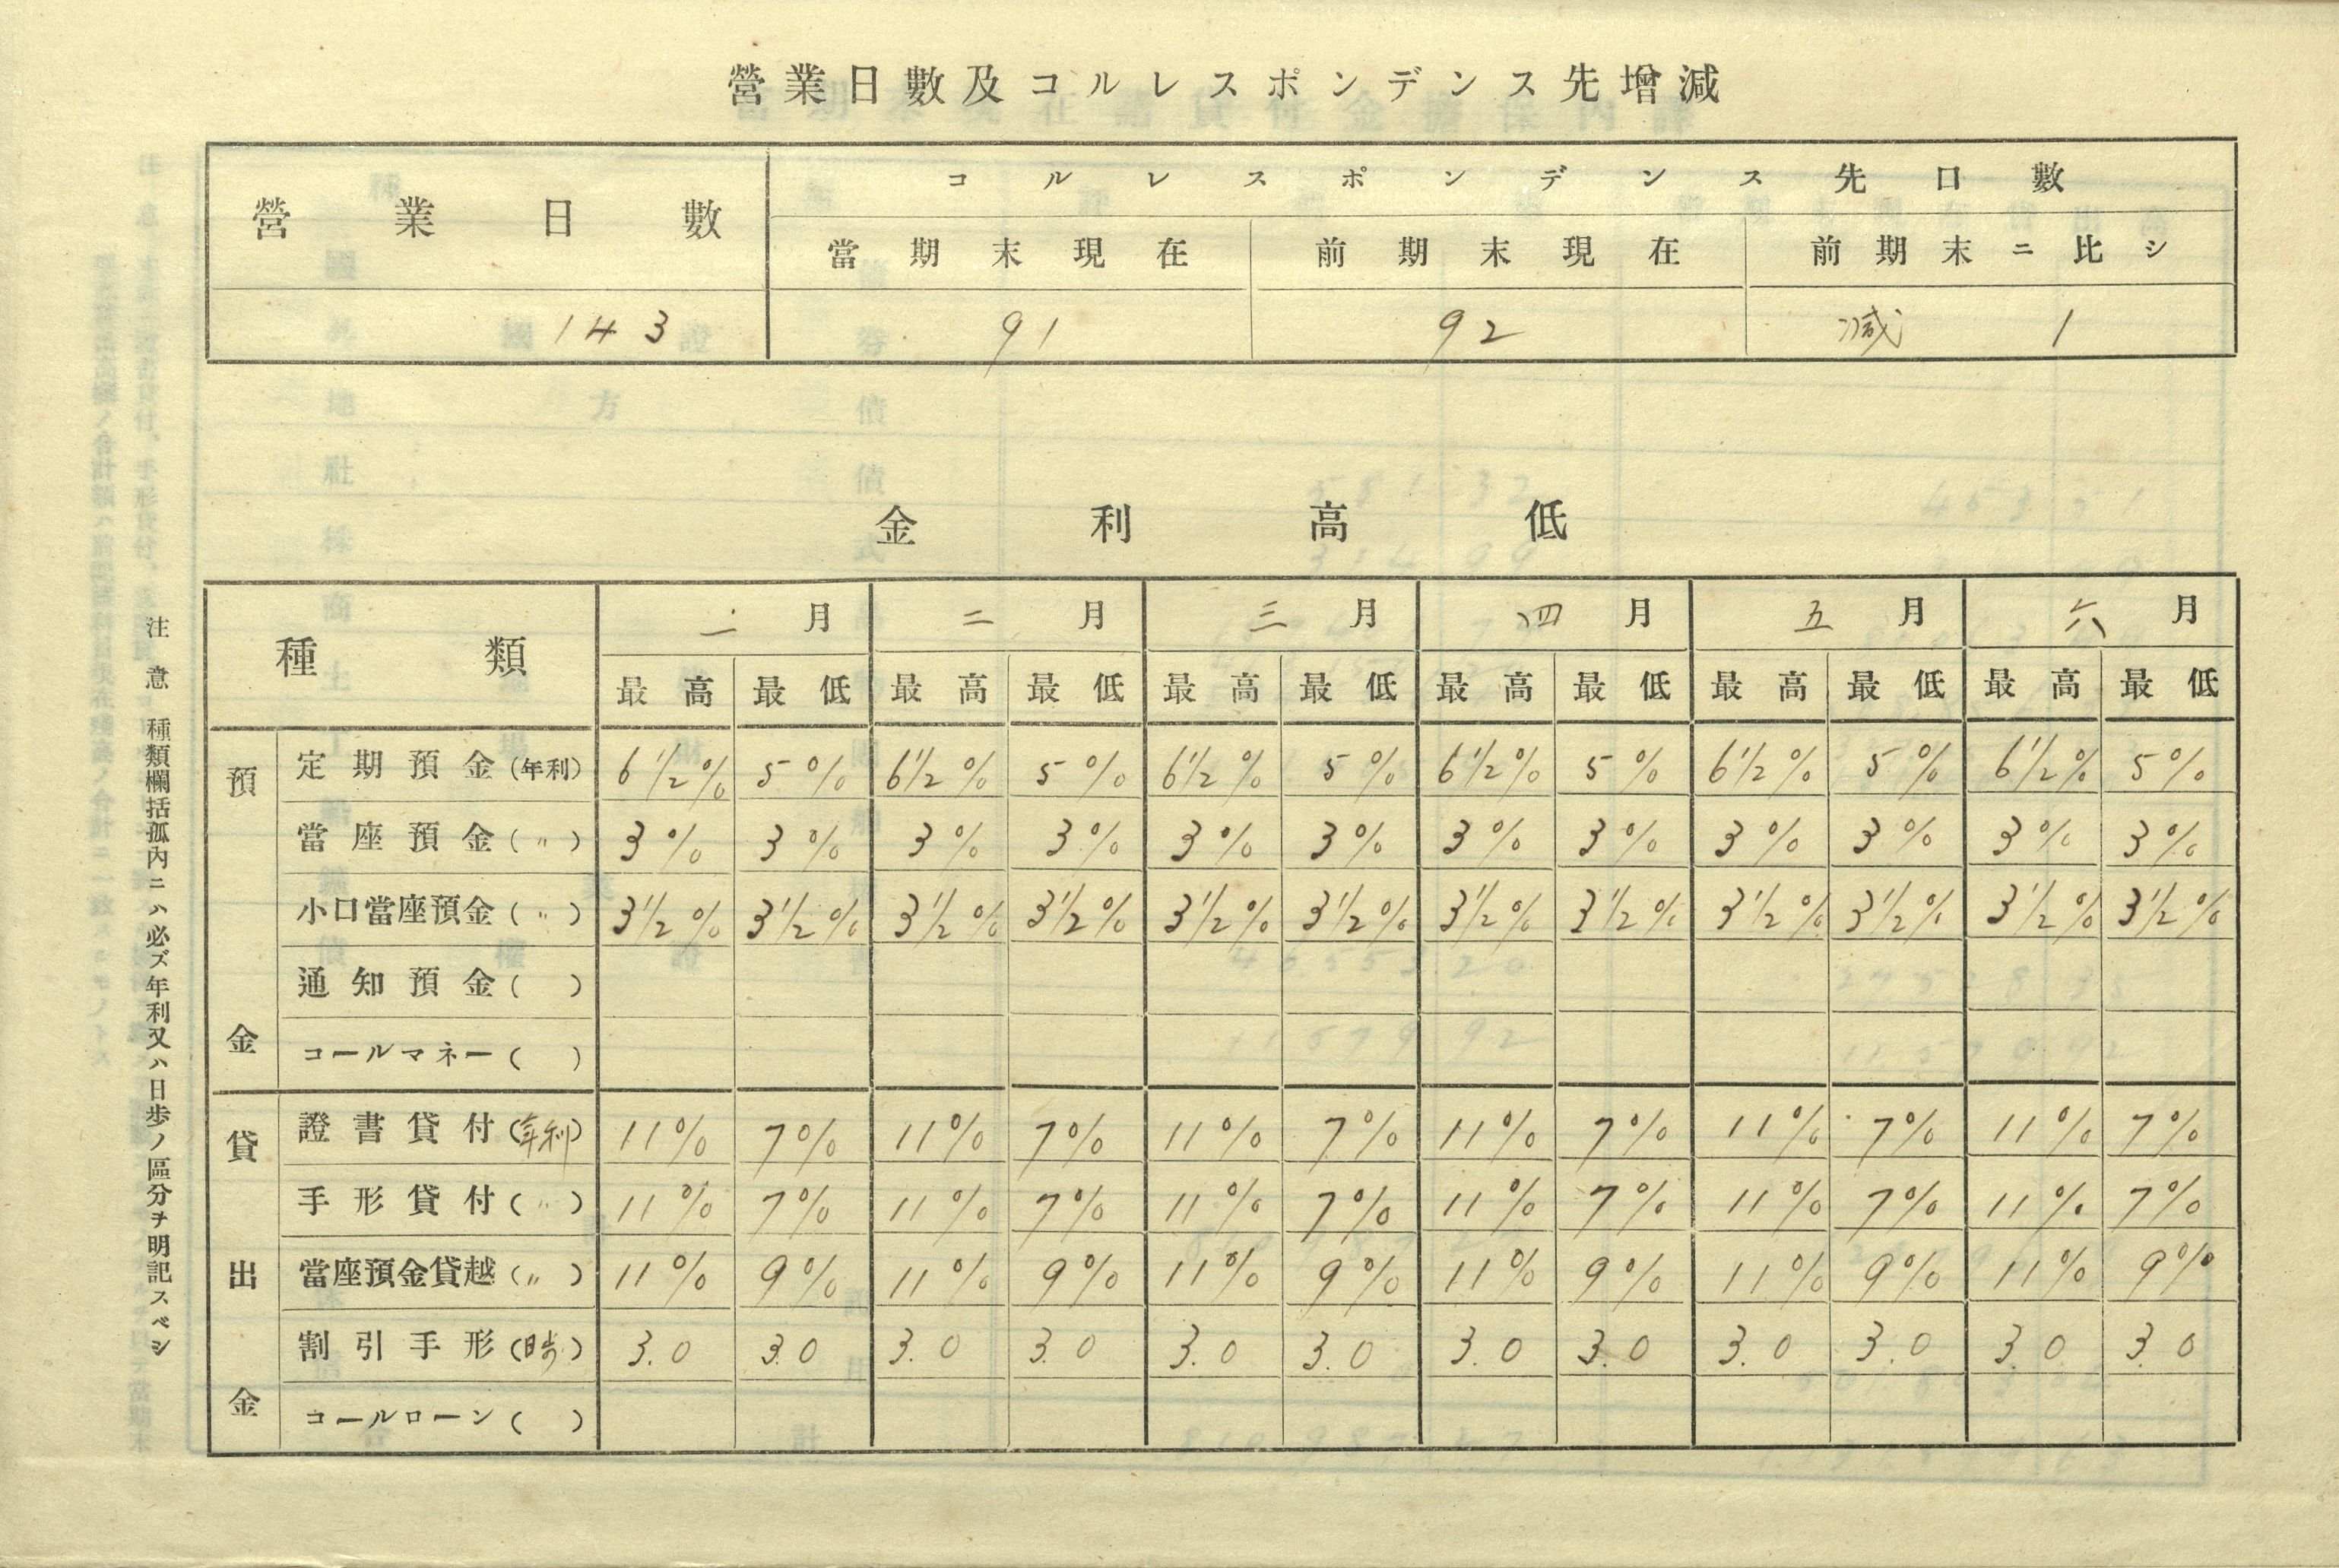 營業日數及コルレスポンデンス先增減
營業日數 コルレスポンデンス先口數
當期末現在 前期末現在 前期末ニ比シ
143 91 92 減 1
金利高低
種類 一月 二月 三月 四月 五月 六月
最高 最低 最高 最低 最高 最低 最高 最低 最高 最低 最高 最低
預金
定期預金(年利) 6½% 5% 6½% 5% 6½% 5% 6½% 5% 6½% 5% 6½% 5%
當座預金(〃) 3% 3% 3% 3% 3% 3% 3% 3% 3% 3% 3% 3%
小口當座預金(〃) 3½% 3½% 3½% 3½% 3½% 3½% 3½% 3½% 3½% 3½% 3½% 3½%
通知預金( )
コールマネー( )
貸出金
證書貸付(年利) 11% 7% 11% 7% 11% 7% 11% 7% 11% 7% 11% 7%
手形貸付(〃) 11% 7% 11% 7% 11% 7% 11% 7% 11% 7% 11% 7%
當座預金貸越(〃) 11% 9% 11% 9% 11% 9% 11% 9% 11% 9% 11% 9%
割引手形(日歩) 3.0 3.0 3.0 3.0 3.0 3.0 3.0 3.0 3.0 3.0 3.0 3.0
コールローン( )
注意 種類欄括孤內ニハ必ズ年利又ハ日步ノ區分ヲ明記スベシ